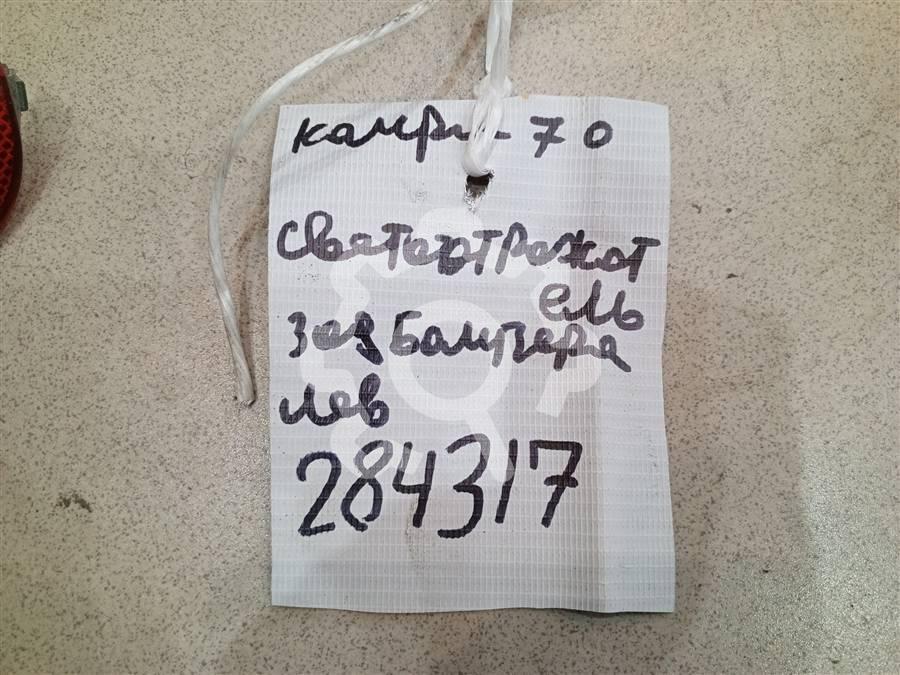 камри 70
светоотражат
ель
зад бампера
лев
284317